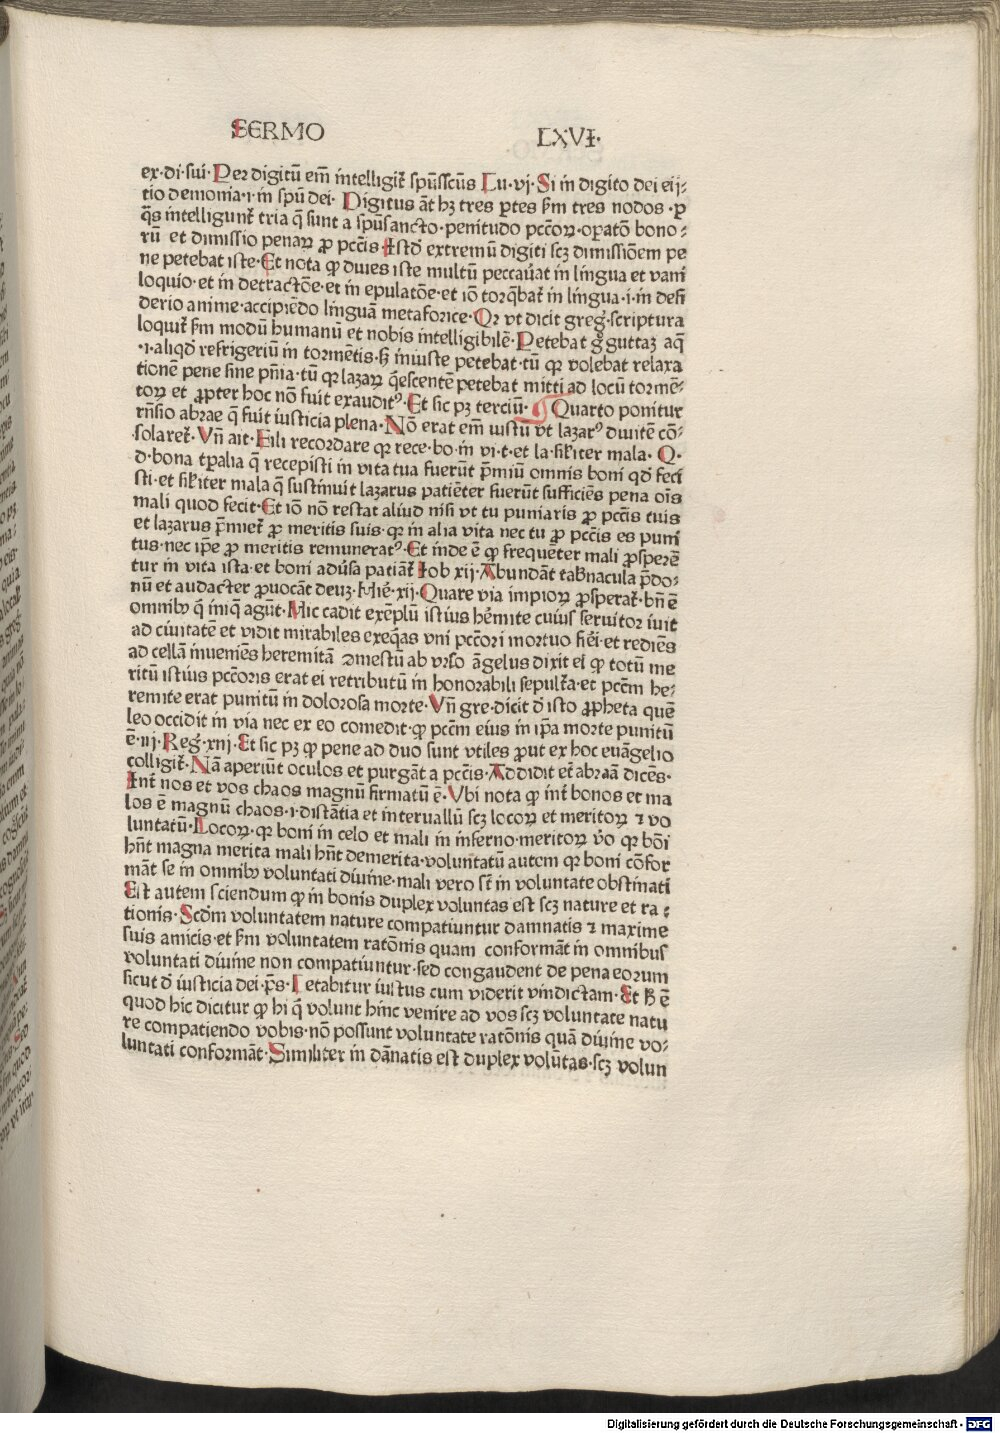 SERMO LXVI·
ex·di·sui· Per digitū em̄ intelligit̄ spūsscūs Lu·vj· Si in digito dei eij⸗
tio demonia·i·in spū dei· Digitus āt hꝫ tres ꝑtes ẜm tres nodos ·ꝑ
q̄s intelligunt̄ tria q̄ sunt a spūsancto·penitudo pccōꝝ·oꝑatō bono⸗
rū et dimissio penaꝝ ꝓ pccīs Istd̄ extremū digiti scꝫ dimissiōem pe
ne petebat iste·Et nota ꝙ diues iste multū peccau̇at in lingua et vani
loquio·et in detractōe·et in epulatōe·et iō torq̄bat̄ in lingua·i·in desi
derio anime·accipiēdo linguā metaforice·Qꝛ vt dicit greḡ·scriptura
loquit̄ ẜm modū humanū et nobis intelligibilē·Petebat g̊ guttaꝫ aq̄
·i·aliqd̄ refrigeriū in tormētis·ẜꝫ iniuste petebat·tū qꝛ volebat relaxa
tionē pene sine pn̄ia·tū qꝛ lazaꝝ q̄escentē petebat mitti ad locū tormē⸗
toꝝ et ꝓpter hoc nō fuit exauditꝰ·Et sic pꝫ terciū· ¶ Quarto ponitur
rn̄sio abrae q̄ fuit iusticia plena·Nō erat em̄ iustū vt lazarꝰ diuitē cō⸗
solaret̄·Vn̄ ait·Fili recordare qꝛ rece·bo·in vi·t·et la·sil̄iter mala·Q·
d·bona tꝑalia q̄ recepisti in vita tua fuerūt p̄miū omnis boni qd̄ feci
sti·et sil̄iter mala q̄ sustinuit lazarus patiēter fuerūt sufficiēs pena oīs
mali quod fecit·Et iō nō restat aliud nisi vt tu puniaris ꝓ pccīs tuis
et lazarus p̄miet̄ ꝓ meritis suis·qꝛ in alia vita nec tu ꝓ pccīs es puni
tus·nec ip̄e ꝓ meritis remuneratꝰ·Et inde ē ꝙ frequēter mali ꝓsperē
tur in vita ista·et boni adu̇sa patiāt̄ Iob xij·Abundāt tab̄nacula p̄do⸗
nū et audacter ꝓuocāt deuꝫ·Hie᷑·xij·Quare via impioꝝ ꝓsperat̄·bn̄ ē
omnibꝰ q̄ iniq̄ agūt·Hic cadit exēplū istius hēmite cuius seruitor iuit
ad ciuitatē et vidit mirabiles exeq̄as vni pccōri mortuo fiēi·et rediēs
ad cellā inueniēs heremitā ꝯmestū ab vrso āgelus dixit ei ꝙ totū me
ritū istius pccōris erat ei retributū in honorabili sepult̄a·et pccm̄ he⸗
remite erat punitū in dolorosa morte·Vn̄ gre·dicit d̄ isto ꝓpheta quē
leo occidit in via nec ex eo comedit·ꝙ pccm̄ eius in ip̄a morte punitū
ē·iij·Reḡ·xiij·Et sic pꝫ ꝙ pene ad duo sunt vtiles ꝓut ex hoc euāgelio
colligit̄·Nā aperiūt oculos et purgāt a pccīs·Addidit et̄ abraā dicēs·
Int̄ nos et vos chaos magnū firmatū ē·Vbi nota ꝙ int̄ bonos et ma
los ē magnū chaos·i·distātia et interuallū scꝫ locoꝝ et meritoꝝ ⁊ vo
luntatū·Locoꝝ·qꝛ boni in celo et mali in inferno·meritoꝝ v̊o qꝛ bōi
hn̄t magna merita mali hn̄t demerita·voluntatū autem qꝛ boni cōfor
māt se in omnibꝰ voluntati diuine·mali vero st̄ in voluntate obstinati
Est autem sciendum ꝙ in bonis duplex voluntas est scꝫ nature et ra⸗
tionis·Scd̄m voluntatem nature compatiuntur damnatis ⁊ maxime
suis amicis·et ẜm voluntatem ratōnis quam conformāt in omnibus
voluntati diuine non compatiuntur·sed congaudent de pena eorum
sicut d̄ iusticia dei·p̄s·Letabitur iustus cum viderit vindictam·Et ẜ ē
quod hic dicitur ꝙ hi q̄ volunt hinc venire ad vos scꝫ voluntate natu
re compatiendo vobis·nō possunt voluntate ratōnis quā diuine vo⸗
luntati conformāt·Similiter in dānatis est duplex volūtas·scꝫ volun
Digitalisierung gefördert durch die Deutsche Forschungsgemeinschaft - DFG